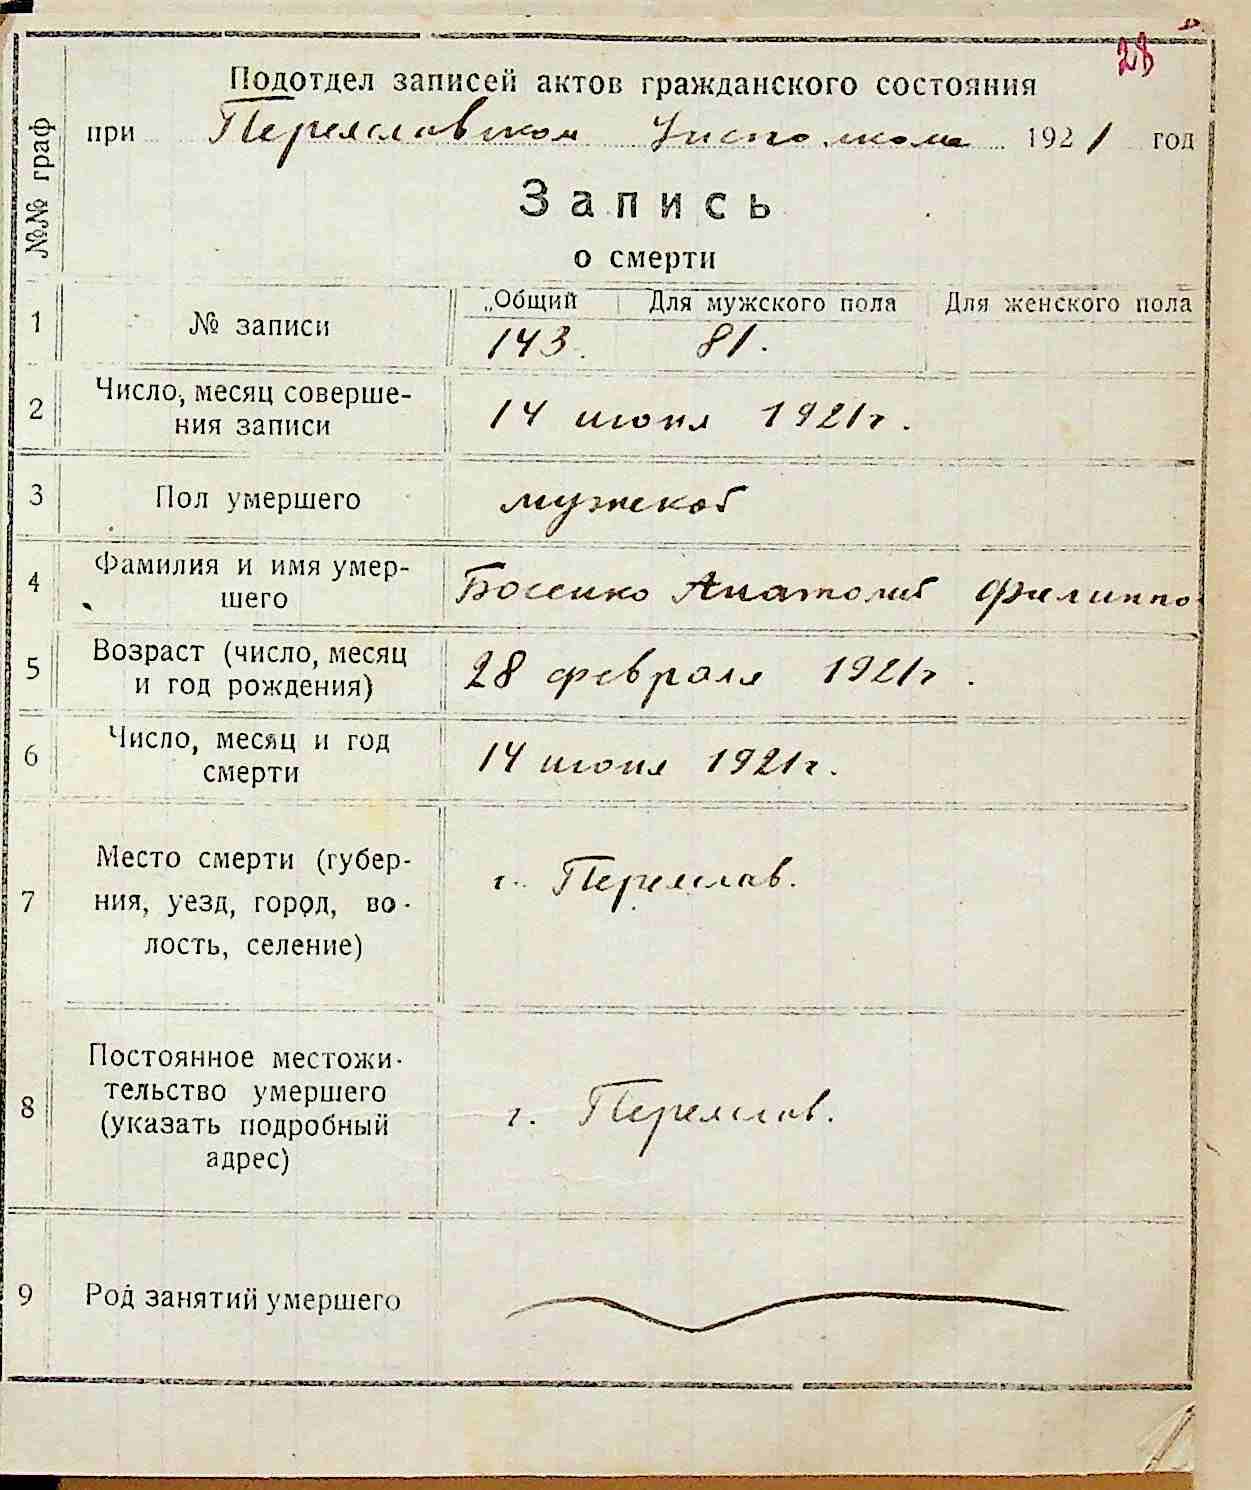 28
Подотдел записей актов гражданского состояния
при Переяславском Исполкоме 1921 год
№№ граф
Запись
о смерти
1 № записи „Общий Для мужского пола Для женского пола
143. 81.
2 Число, месяц соверше-
ния записи
14 июня 1921 г.
3 Пол умершего мужской
4 Фамилия и имя умер-
шего
Босенко Анатолий Филиппо
5 Возраст (число, месяц
и год рождения)
28 февраля 1921 г.
6 Число, месяц и год
смерти
14 июня 1921 г.
7 Место смерти (губер-
ния, уезд, город, во-
лость, селение)
г. Переяслав.
8 Постоянное местожи-
тельство умершего
(указать подробный
адрес)
г. Переяслав.
9 Род занятий умершего